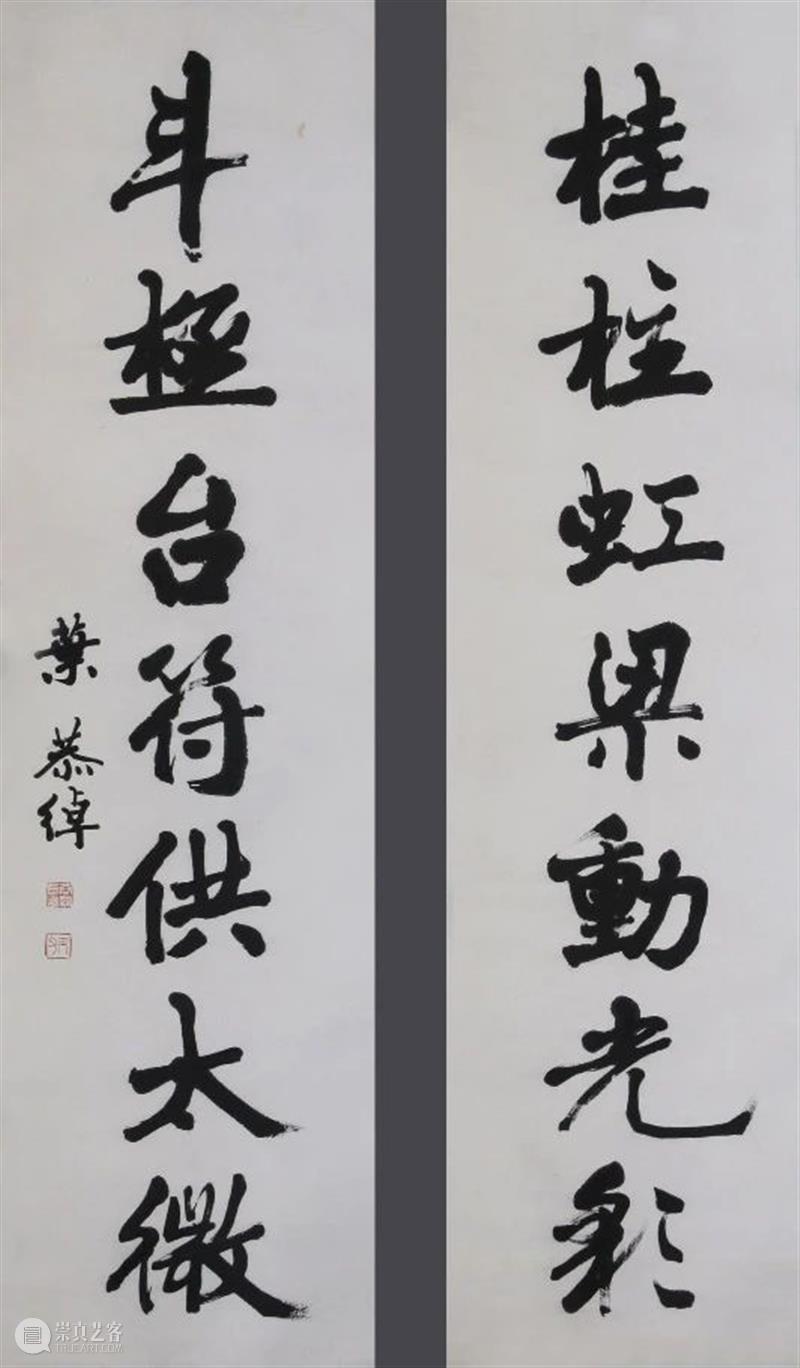 桂柱虹梁動光彩
斗極台符供太微
葉恭綽
崇真艺客